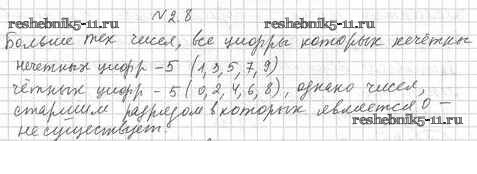 №2.8
www.reshebnik5-11.ru
reshebnik5-11.ru
Больше тех чисел, все цифры которых нечётны
нечетных цифр – 5 (1, 3, 5, 7, 9)
чётных цифр – 5 (0, 2, 4, 6, 8), однако чисел,
старшим разрядом в которых является 0 –
не существует.
reshebnik5-11.ru